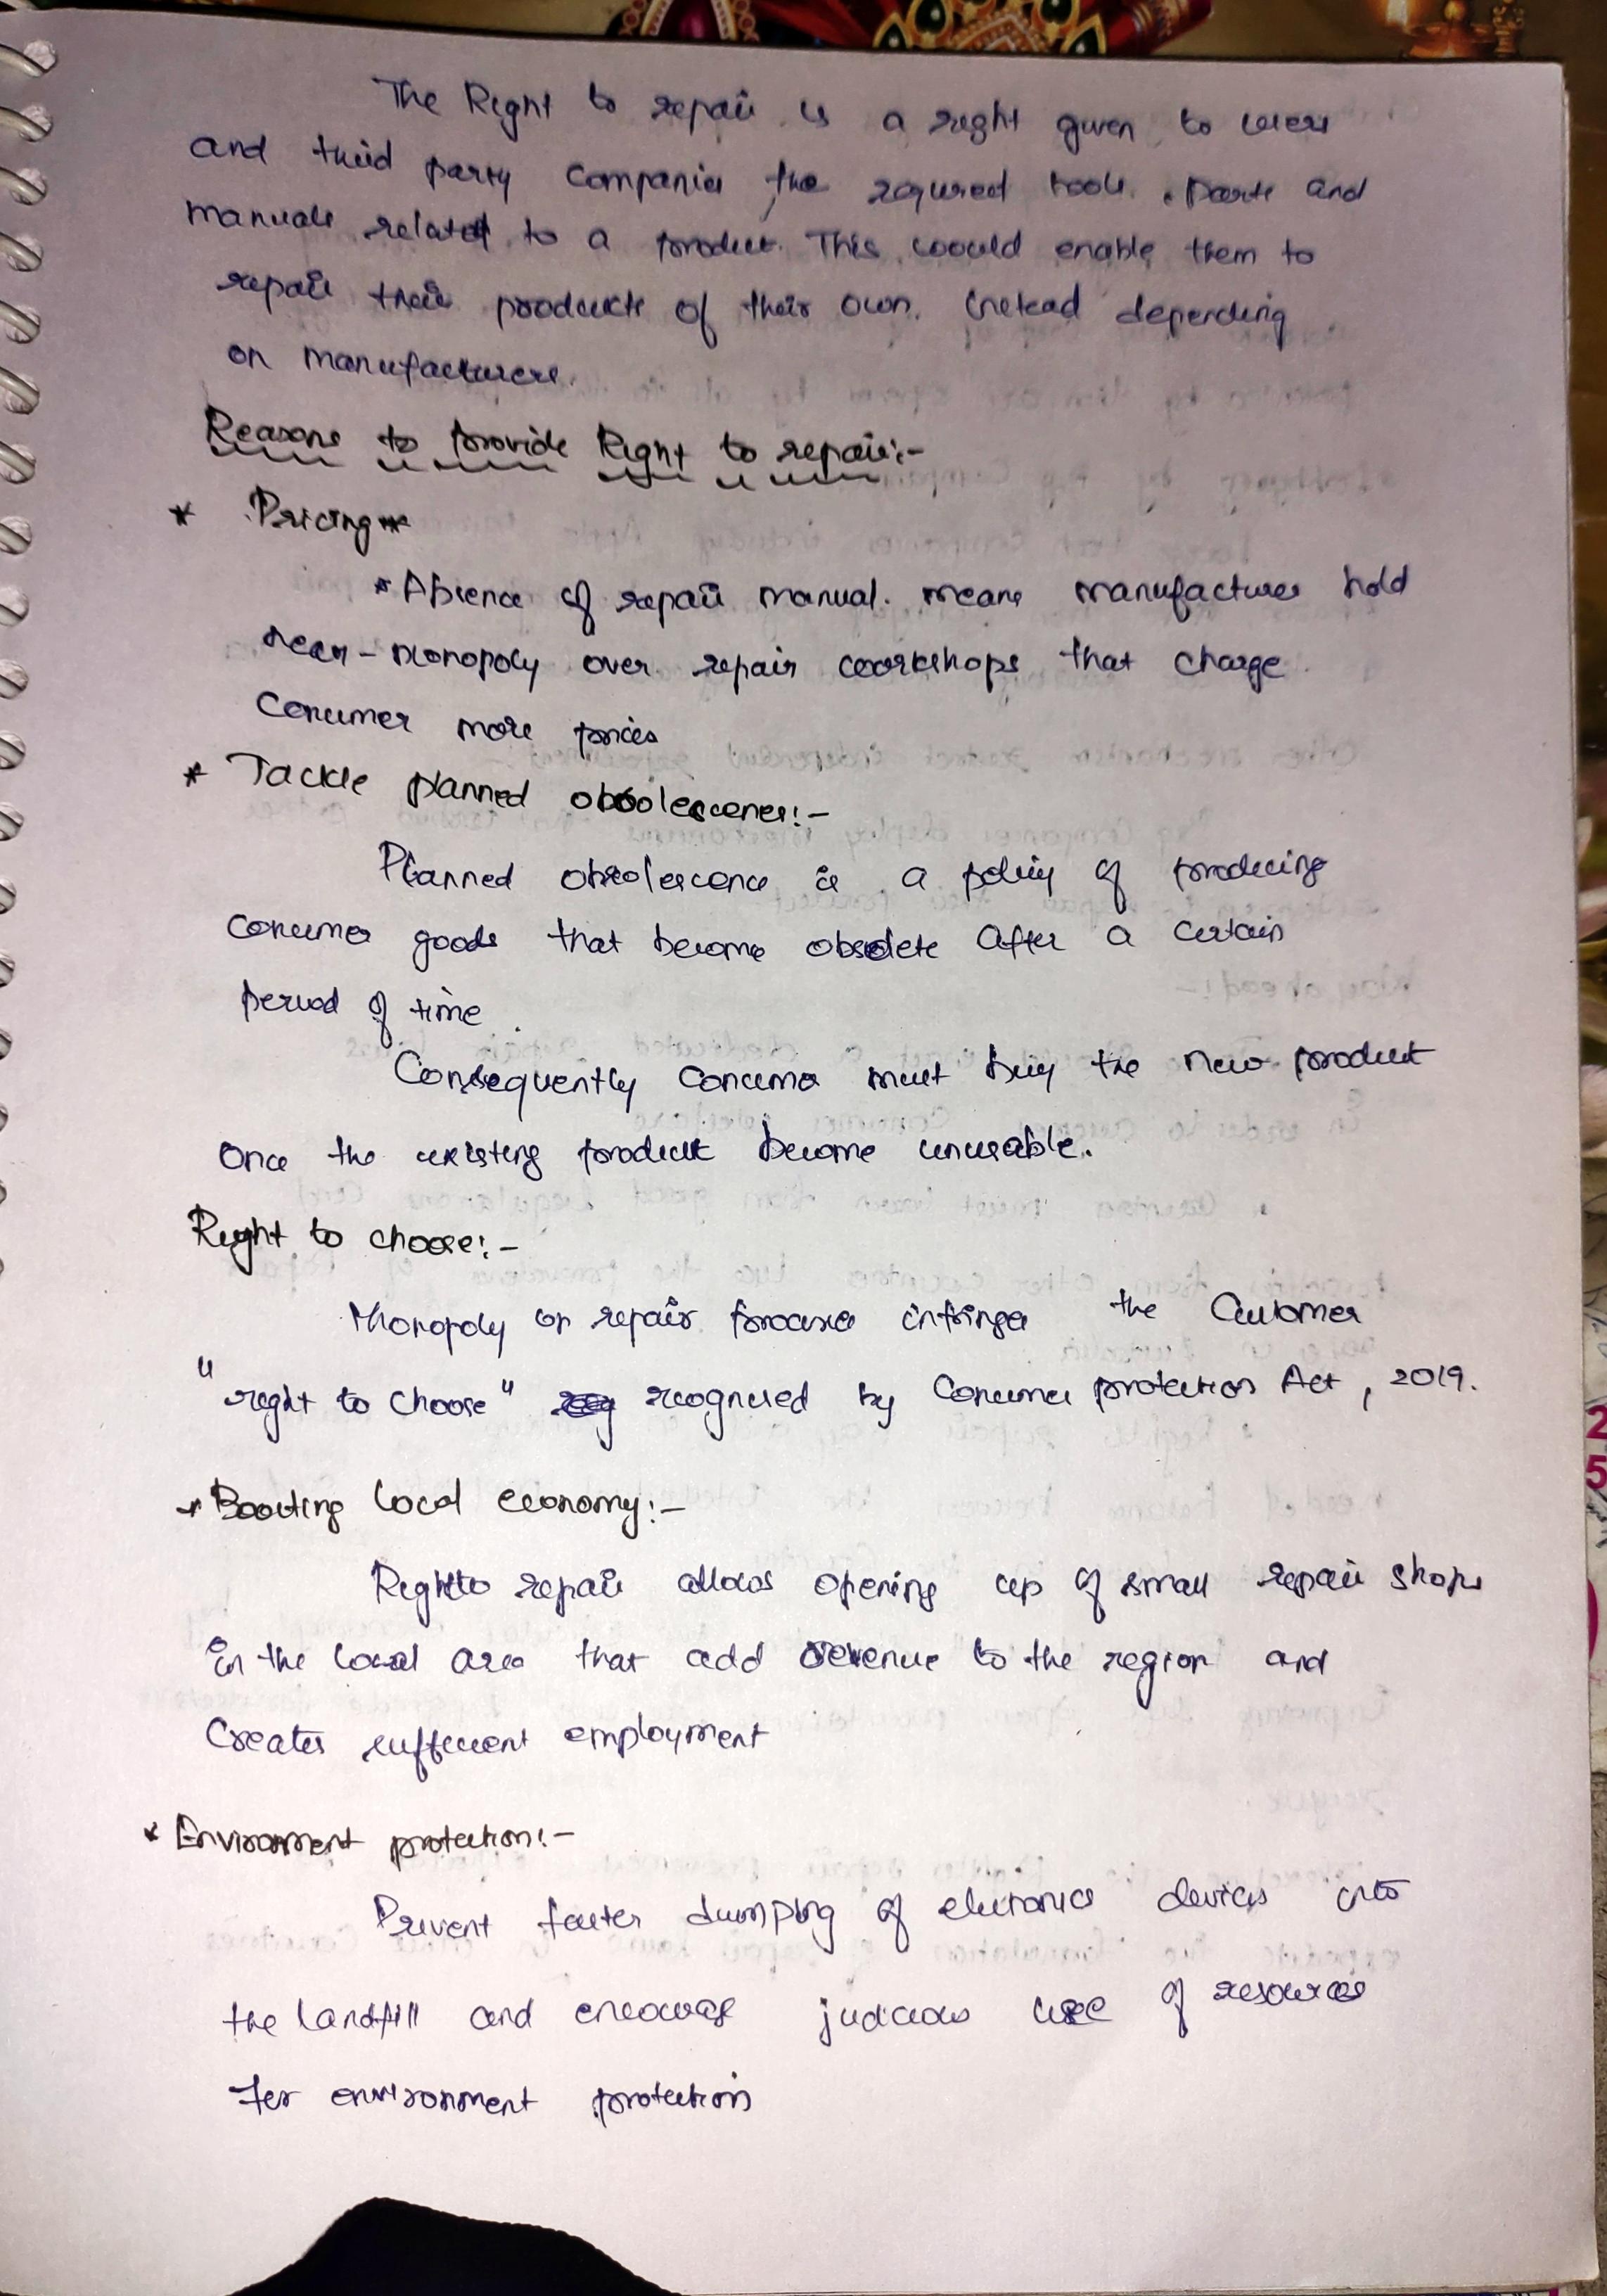 The Right to repair is a right given to users
and third party companies the required tools, parts and
manuals related to a product. This would enable them to
repair their products of their own. Instead depending
on manufacturers.
Reasons to provide Right to repair:-
* Pricing
* Absence of repair manual. means manufactures hold
near-monopoly over repair workshops that charge
Consumer more prices
* Tackle planned obsolescence:-
Planned obsolescence is a policy of producing
consumer goods that become obsolete after a certain
period of time
Consequently consumer must buy the new product
once the existing product become unusable.
Right to choose:-
Monopoly on repair process infringes the Customer
"right to choose" recognised by Consumer protection Act, 2019.
* Boosting local economy:-
Right to repair allows opening up of small repair shops
in the local area that add revenue to the region and
Creates sufficient employment
* Environment protection:-
Prevent faster dumping of electronics devices into
the landfill and encourage judicious use of resources
for environment protection
2
5